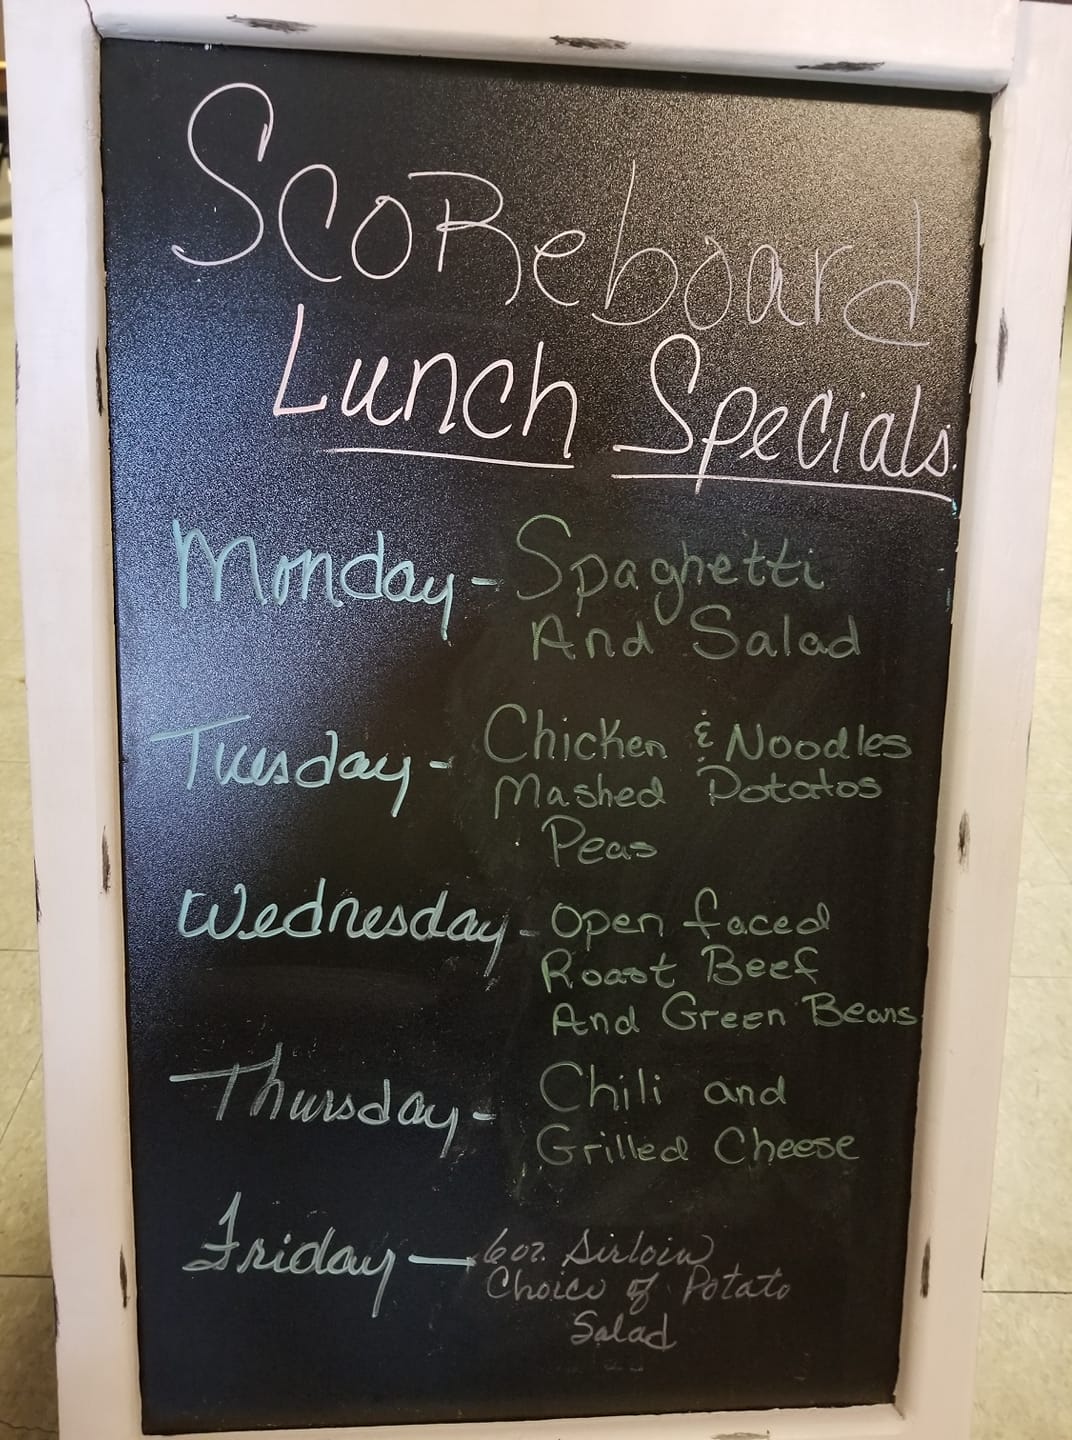 Scoreboard
Lunch Specials.
Monday - Spaghetti
And Salad
Tuesday - Chicken & Noodles
Mashed Potatos
Peas
Wednesday - Open faced
Roast Beef
And Green Beans
Thursday - Chili and
Grilled Cheese
Friday — 6oz. Sirloin
Choice of Potato
Salad